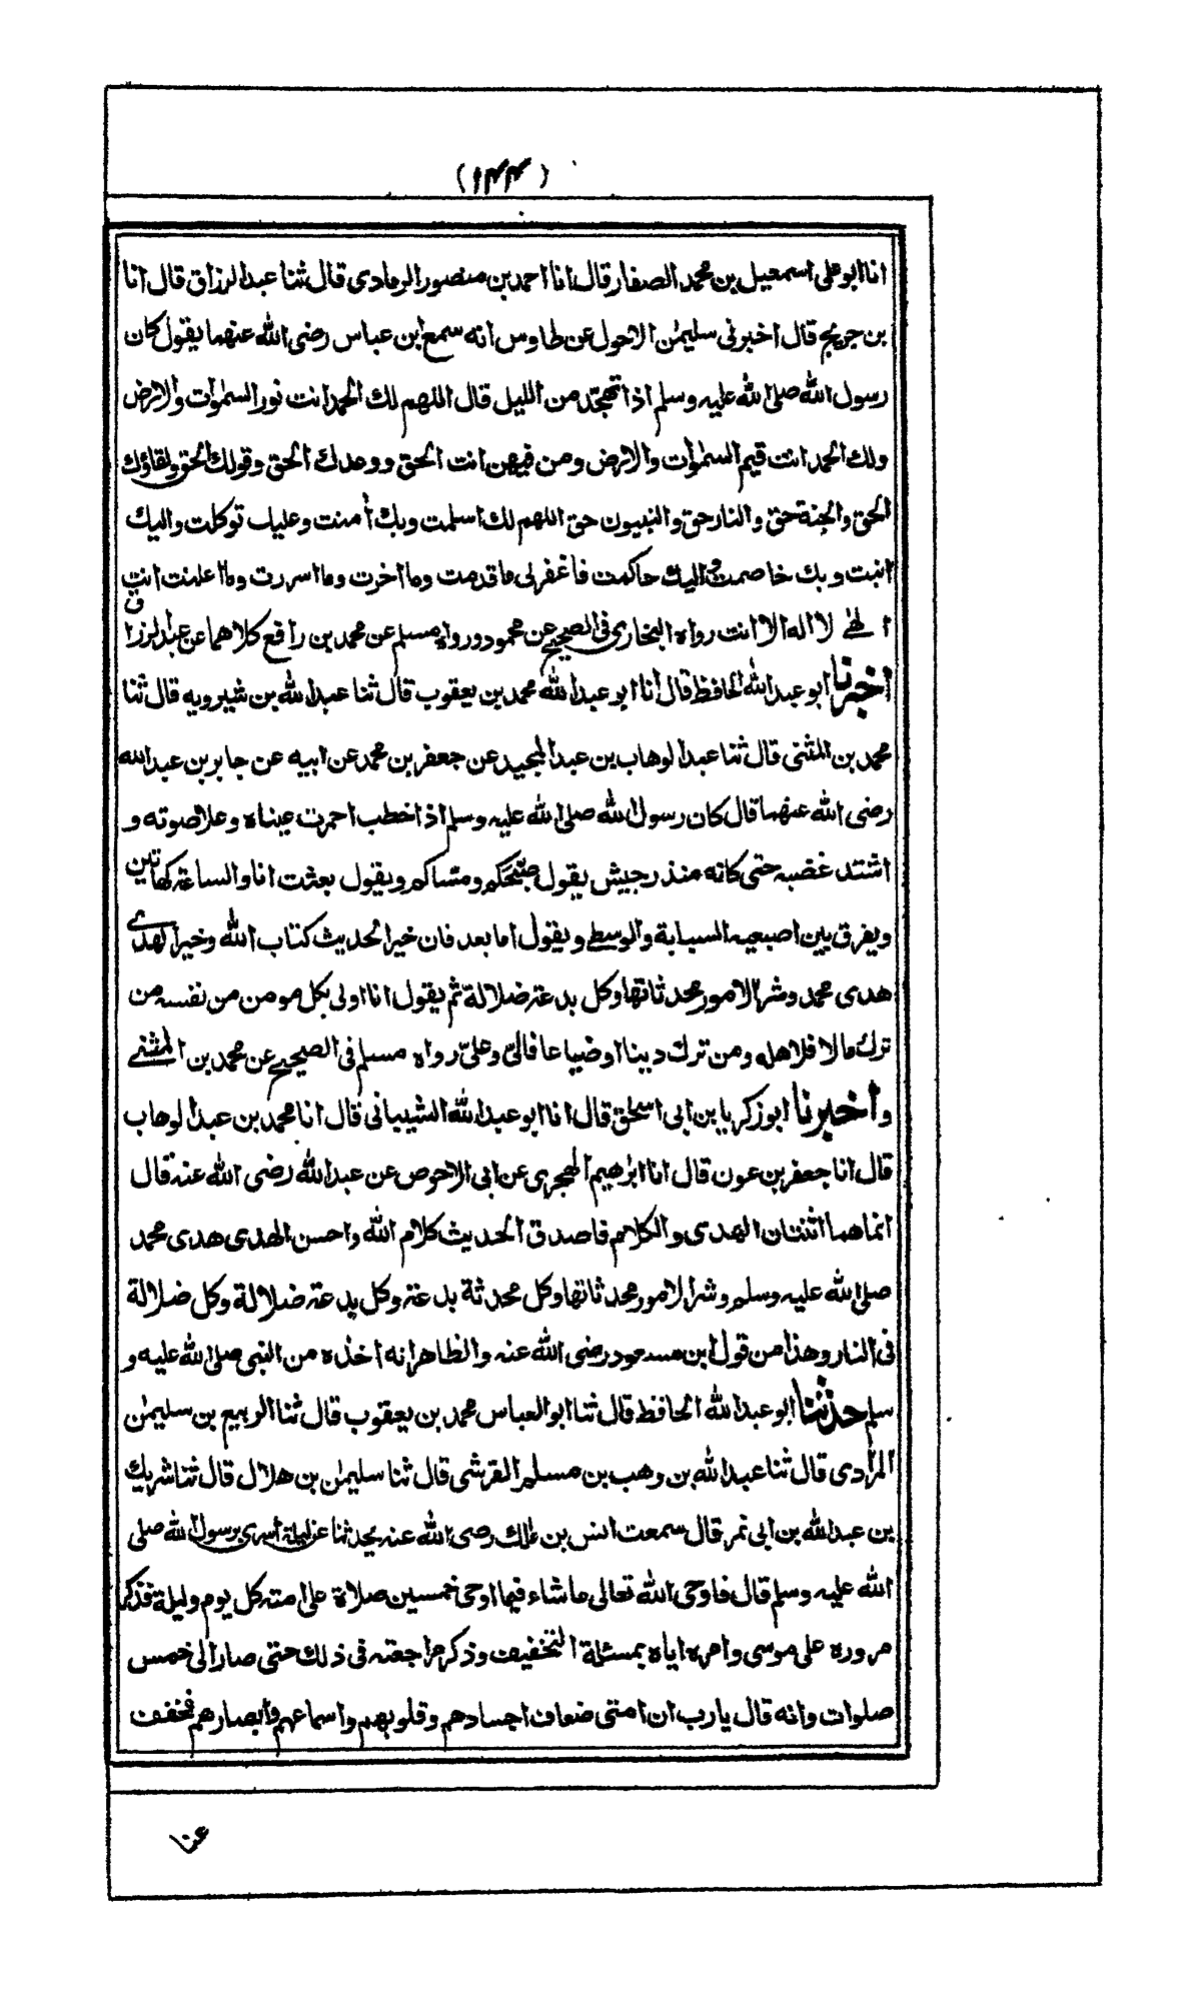 (۱۴۴)
انا ابو علی اسمعیل بن محمد الصفار قال انا احمد بن منصور الرمادی قال ثنا عبد الرزاق قال انا
بن جریج قال اخبرنی سلیمٰن الاحول عن طاوس انه سمع ابن عباس رضی الله عنهما یقول کان
رسول الله صلی الله علیه وسلم اذا تهجّد من اللیل قال اللهم لك الحمد انت نور السمٰوات والارض
ولك الحمد انت قیم السمٰوات والارض ومن فیهن انت الحق ووعدك الحق وقولك الحق ولقاؤك
الحق والجنة حق والنار حق والنبیون حق اللهم لك اسلمت وبك اٰمنت وعلیك توکلت والیك
انبت وبك خاصمت والیك حاکمت فاغفر لی ما قدمت وما اخرت وما اسررت وما اعلنت انت
الٰهی لا اله الا انت رواه البخاری فی الصحیح عن محمود ورواه مسلم عن محمد بن رافع کلاهما عن عبد الرزاق
اخبرنا ابو عبد الله الحافظ قال انا ابو عبد الله محمد بن یعقوب قال ثنا عبد الله بن شیرویه قال ثنا
محمد بن المثنی قال ثنا عبد الوهاب بن عبد المجید عن جعفر بن محمد عن ابیه عن جابر بن عبد الله
رضی الله عنهما قال کان رسول الله صلی الله علیه وسلم اذا خطب احمرت عیناه وعلا صوته و
اشتد غضبه حتی کانه منذر جیش یقول صبّحکم ومسّاکم ویقول بعثت انا والساعة کهاتین
ویفرق بین اصبعیه السبابة والوسطی ویقول اما بعد فان خیر الحدیث کتاب الله وخیر الهدی
هدی محمد وشر الامور محدثاتها وکل بدعة ضلالة ثم یقول انا اولی بکل مومن من نفسه من
ترك مالا فلاهله ومن ترك دینا او ضیاعا فالیّ وعلیّ رواه مسلم فی الصحیح عن محمد بن المثنی
واخبرنا ابو زکریا بن ابی اسحٰق قال انا ابو عبد الله الشیبانی قال انا محمد بن عبد الوهاب
قال انا جعفر بن عون قال انا ابرٰهیم الهجری عن ابی الاحوص عن عبد الله رضی الله عنه قال
انما هما اثنتان الهدی والکلام فاصدق الحدیث کلام الله واحسن الهدی هدی محمد
صلی الله علیه وسلم وشر الامور محدثاتها وکل محدثة بدعة وکل بدعة ضلالة وکل ضلالة
فی النار وهذا من قول ابن مسعود رضی الله عنه والظاهر انه اخذه من النبی صلی الله علیه و
سلم حدثنا ابو عبد الله الحافظ قال ثنا ابو العباس محمد بن یعقوب قال ثنا الربیع بن سلیمٰن
المرادی قال ثنا عبد الله بن وهب بن مسلم القرشی قال ثنا سلیمٰن بن هلال قال ثنا شریك
بن عبد الله بن ابی نمر قال سمعت انس بن مٰلك رضی الله عنه یحدثنا عن لیلة اسری برسول الله صلی
الله علیه وسلم قال فاوحی الله تعالی ما شاء فیما اوحی خمسین صلاة علی امته کل یوم ولیلة فذکر
مروره علی موسی وامره ایاه بمسئلة التخفیف وذکر مراجعته فی ذلك حتی صار الی خمس
صلوات وانه قال یا رب ان امتی ضعاف اجسادهم وقلوبهم واسماعهم وابصارهم فخفف
عنا